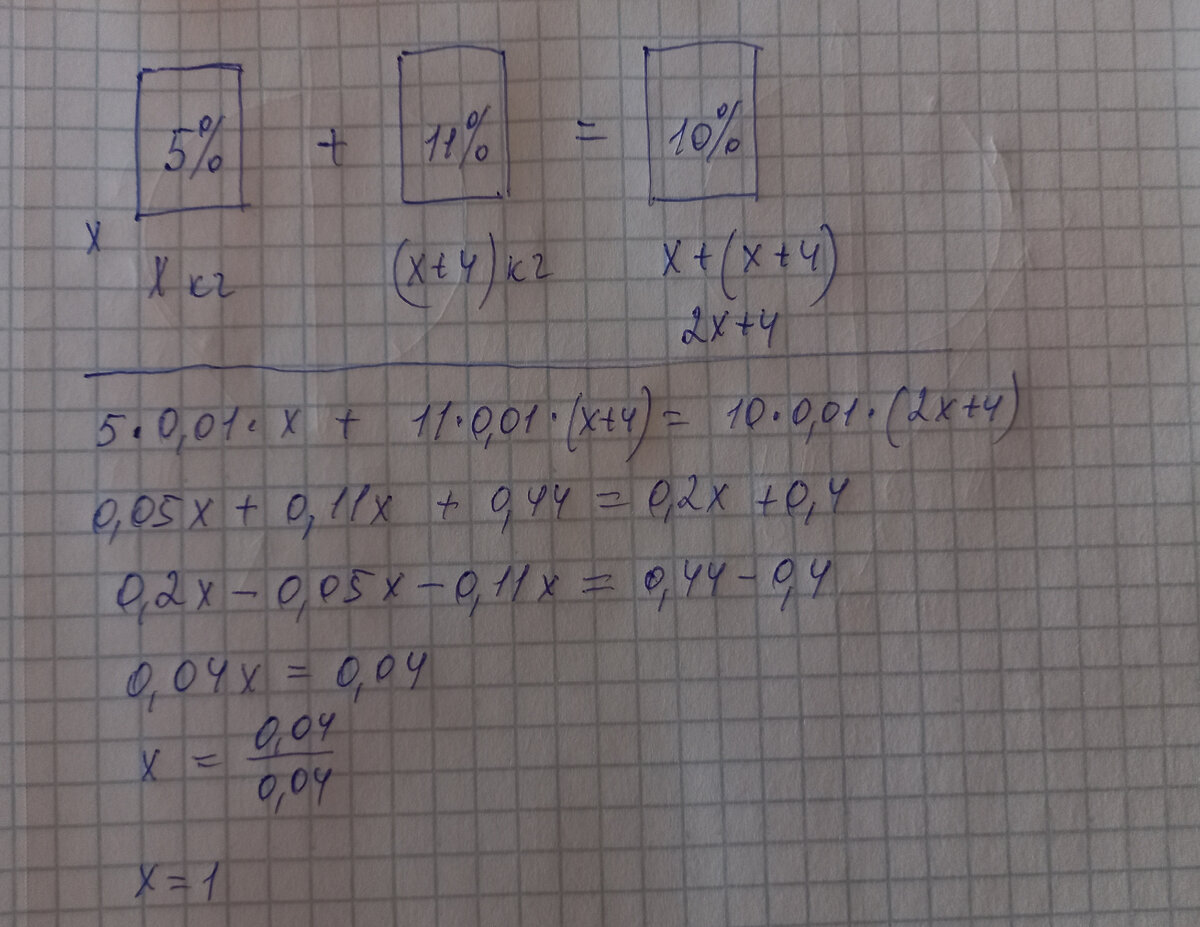 5% + 11% = 10%
x
x кг (x+4) кг x+(x+4)
2x+4
5·0,01·x + 11·0,01·(x+4) = 10·0,01·(2x+4)
0,05x + 0,11x + 0,44 = 0,2x + 0,4
0,2x - 0,05x - 0,11x = 0,44 - 0,4
0,04x = 0,04
x = 0,04/0,04
x = 1